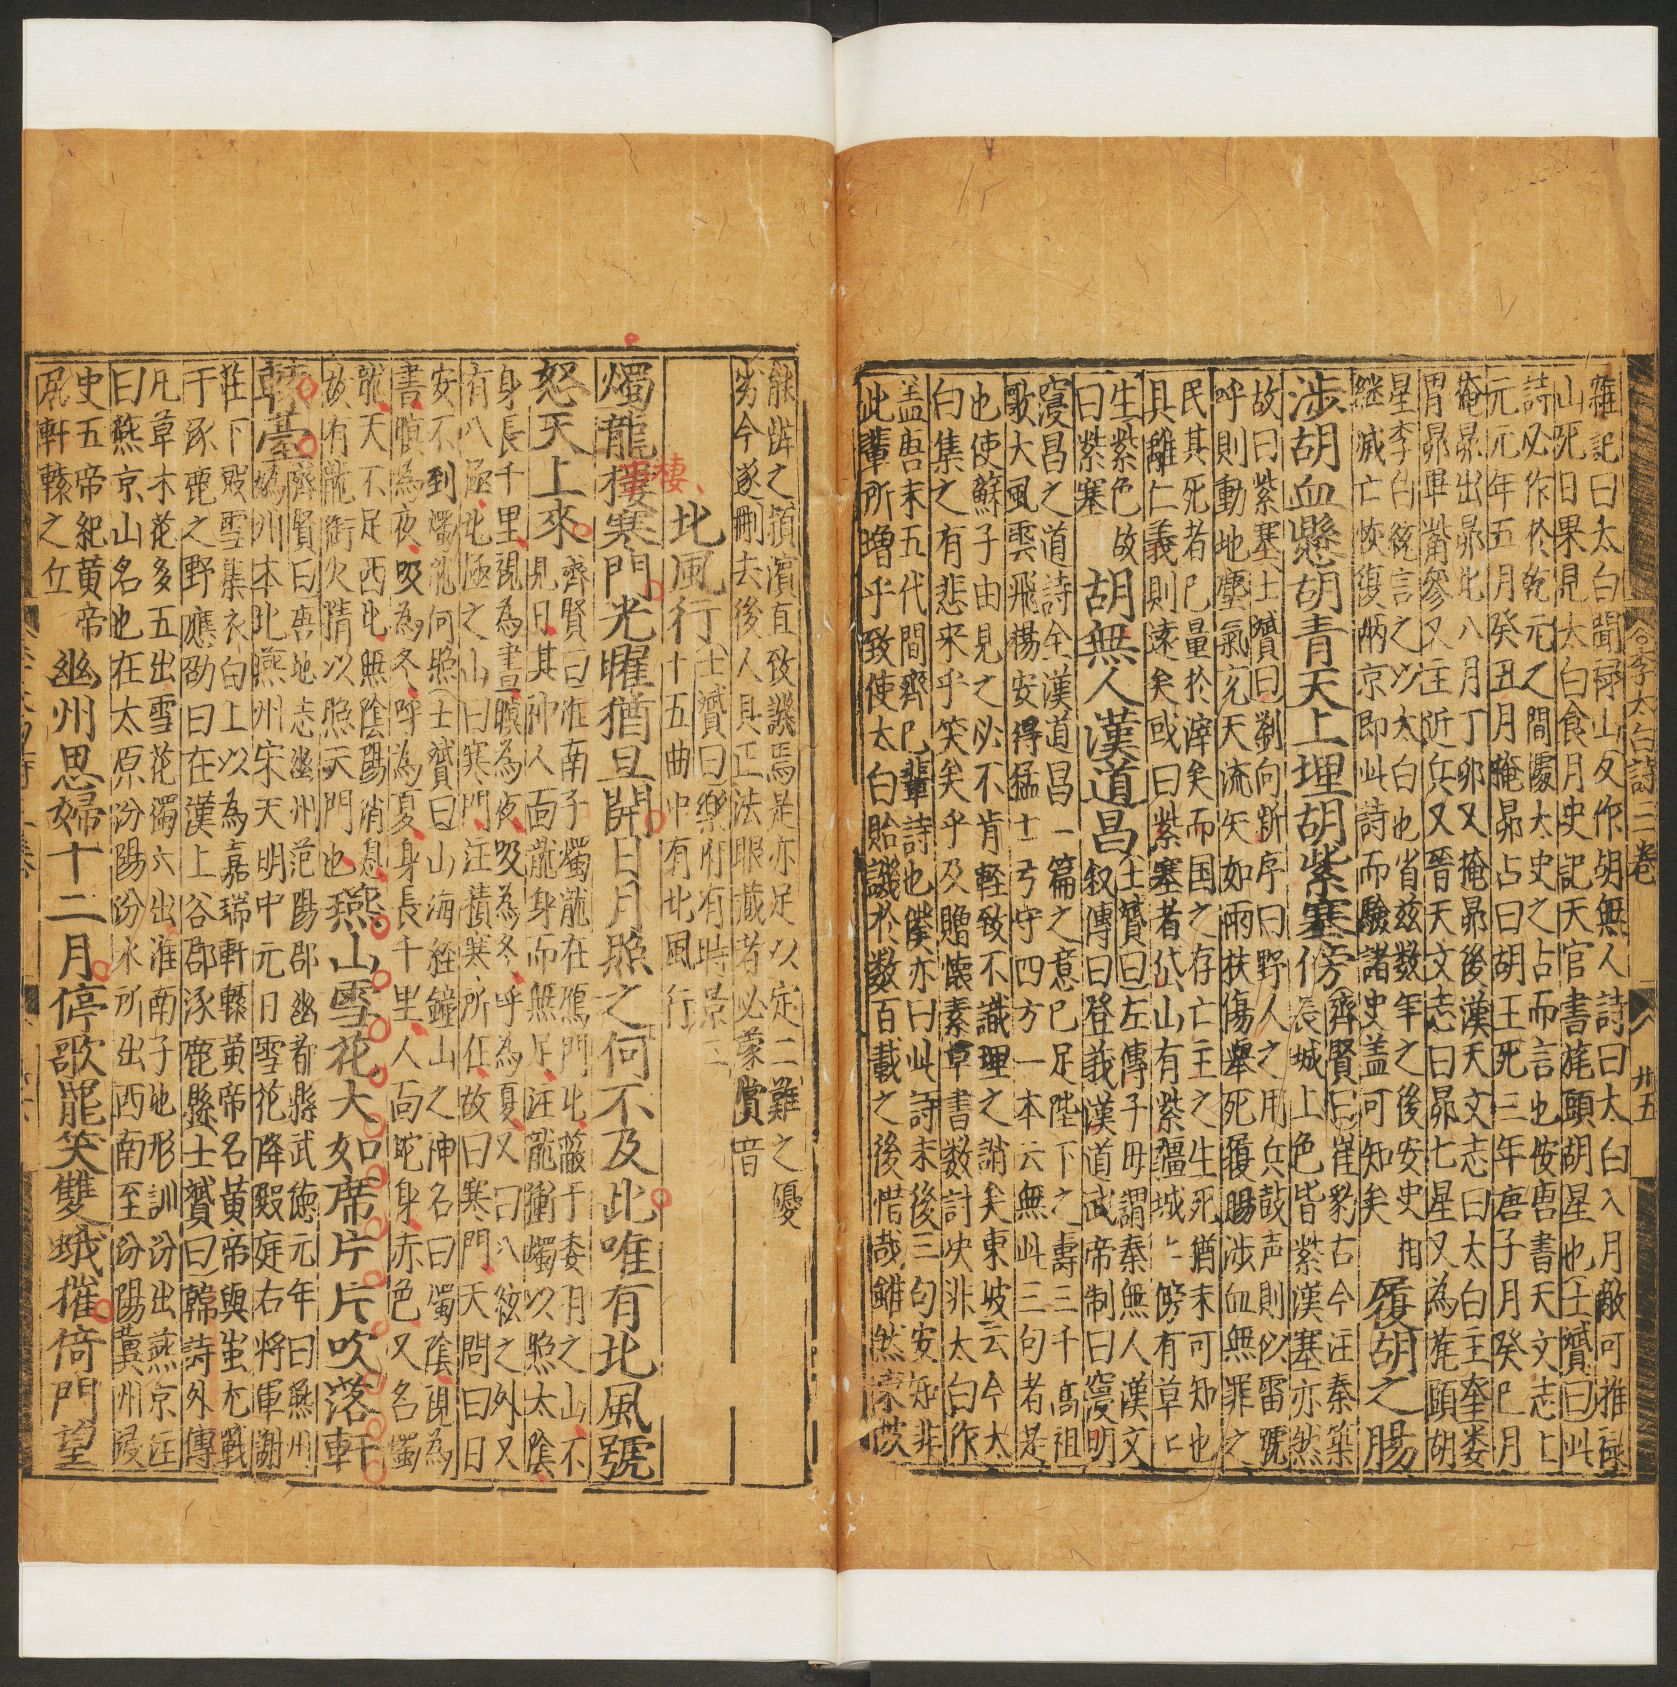 李太白詩三卷 廿五
雜記曰太白聞祿山反作胡無人詩曰太白入月敵可摧祿
山死日果見太白食月史記天官書旄頭胡星也士贇曰此
詩必作於乾元之間太史之占而言也按唐書天文志上
元元年五月癸丑月掩昴占曰胡王死三年唐子月癸巳月
掩昴出昴北八月丁卯又掩昴後漢天文志曰太白主奎娄
胃昴畢觜參又主近兵又晉天文志曰昴七星又為旄頭胡
星李白言之以太白也省茲数年之後安史相
継滅亡恢復兩京即此詩而驗諸史盖可知矣
履胡之腸
涉胡血懸胡青天上埋胡紫塞傍
齊賢曰崔豹古今注秦築
長城土色皆紫漢塞亦然
故曰紫塞士贇曰劉向新序曰野人之用兵鼓声則似雷號
呼則動地塵氣充天流矢如雨扶傷輿死履腸涉血無罪之
民其死者已量於澤矣而国之存亡主之生死猶未可知也
其離仁義則遠矣或曰紫塞者岱山有紫疆城上傍有草上
生紫色故
曰紫塞
胡無人漢道昌
士贇曰左傳子毋謂秦無人漢文
叙傳曰登我漢道武帝制曰寖明
寖昌之道詩全漢道昌一篇之意已足陛下之壽三千高祖
歌大風雲飛揚安得猛士兮守四方一本云無此三句者是
也使蘇子由見之必不肯輕致不識理之誚矣東坡云今太
白集之有悲来乎笑矣乎及贈懷素草書数詩决非太白作
盖唐末五代間齊已輩詩也僕亦曰此詩末後三句安知非
此輩所增乎致使太白貽譏於数百載之後惜哉雖然東坡
能辨之潁濱直致譏焉是亦足以定二難之優
劣今遂刪去後人具正法眼藏者必蒙賞音
北風行
士贇曰樂府有時景二
十五曲中有北風行
燭龍棲寒門光曜猶旦開日月照之何不及此唯有北風號
棲
怒天上來
齊賢曰淮南子燭龍在鴈門北蔽于委羽之山不
見日其神人面龍身而無足注龍銜燭以照太陰
身長千里視為晝瞑為夜吸為冬呼為夏又曰八紘之外又
有八極北極之山曰寒門注積寒所在故曰寒門天問曰日
安不到燭龍何照士贇曰山海經鐘山之神名曰燭陰視為
晝瞑為夜吸為冬呼為夏身長千里人面蛇身赤色又名燭
龍天不足西北無陰陽消息
故有龍銜火精以照天門也
燕山雪花大如席片片吹落軒
轅臺
齊賢曰唐地志幽州范陽郡幽都縣武德元年曰燕州
媯州本北燕州宋天明中元日雪花降殿庭右將軍謝
莊下殿雪集衣白上以為嘉瑞軒轅黃帝名黃帝與蚩尤戰
于涿鹿之野應劭曰在漢上谷郡涿鹿縣士贇曰韓詩外傳
凡草木花多五出雪花獨六出淮南子地形訓汾出燕京注
曰燕京山名也在太原汾陽汾水所出西南至汾陽冀州浸
史五帝紀黃帝
居軒轅之丘
幽州思婦十二月停歌罷笑雙蛾摧倚門望